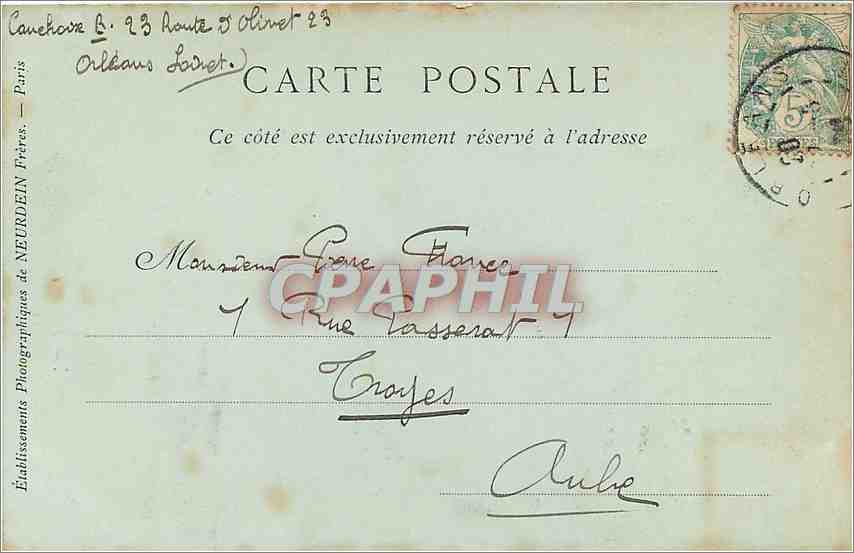 Cauchoix B. 23 Route d'Olivet 23
Orléans Loiret.)
CARTE POSTALE
Ce côté est exclusivement réservé à l'adresse
ORLEANS
5
Monsieur Pierre
CPAPHIL
1 Rue Passerat 1
Troyes
Aube
Établissements Photographiques de NEURDEIN Frères. — Paris